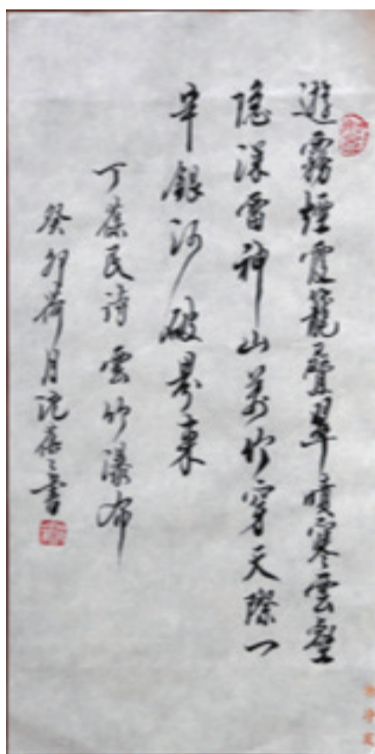 遊霧煙霞籠疊翠噴寒雲壑
隐深雷神山萬竹穿天際一
銀河破来
丁民詩雲竹瀑布
癸卯荷月沈書